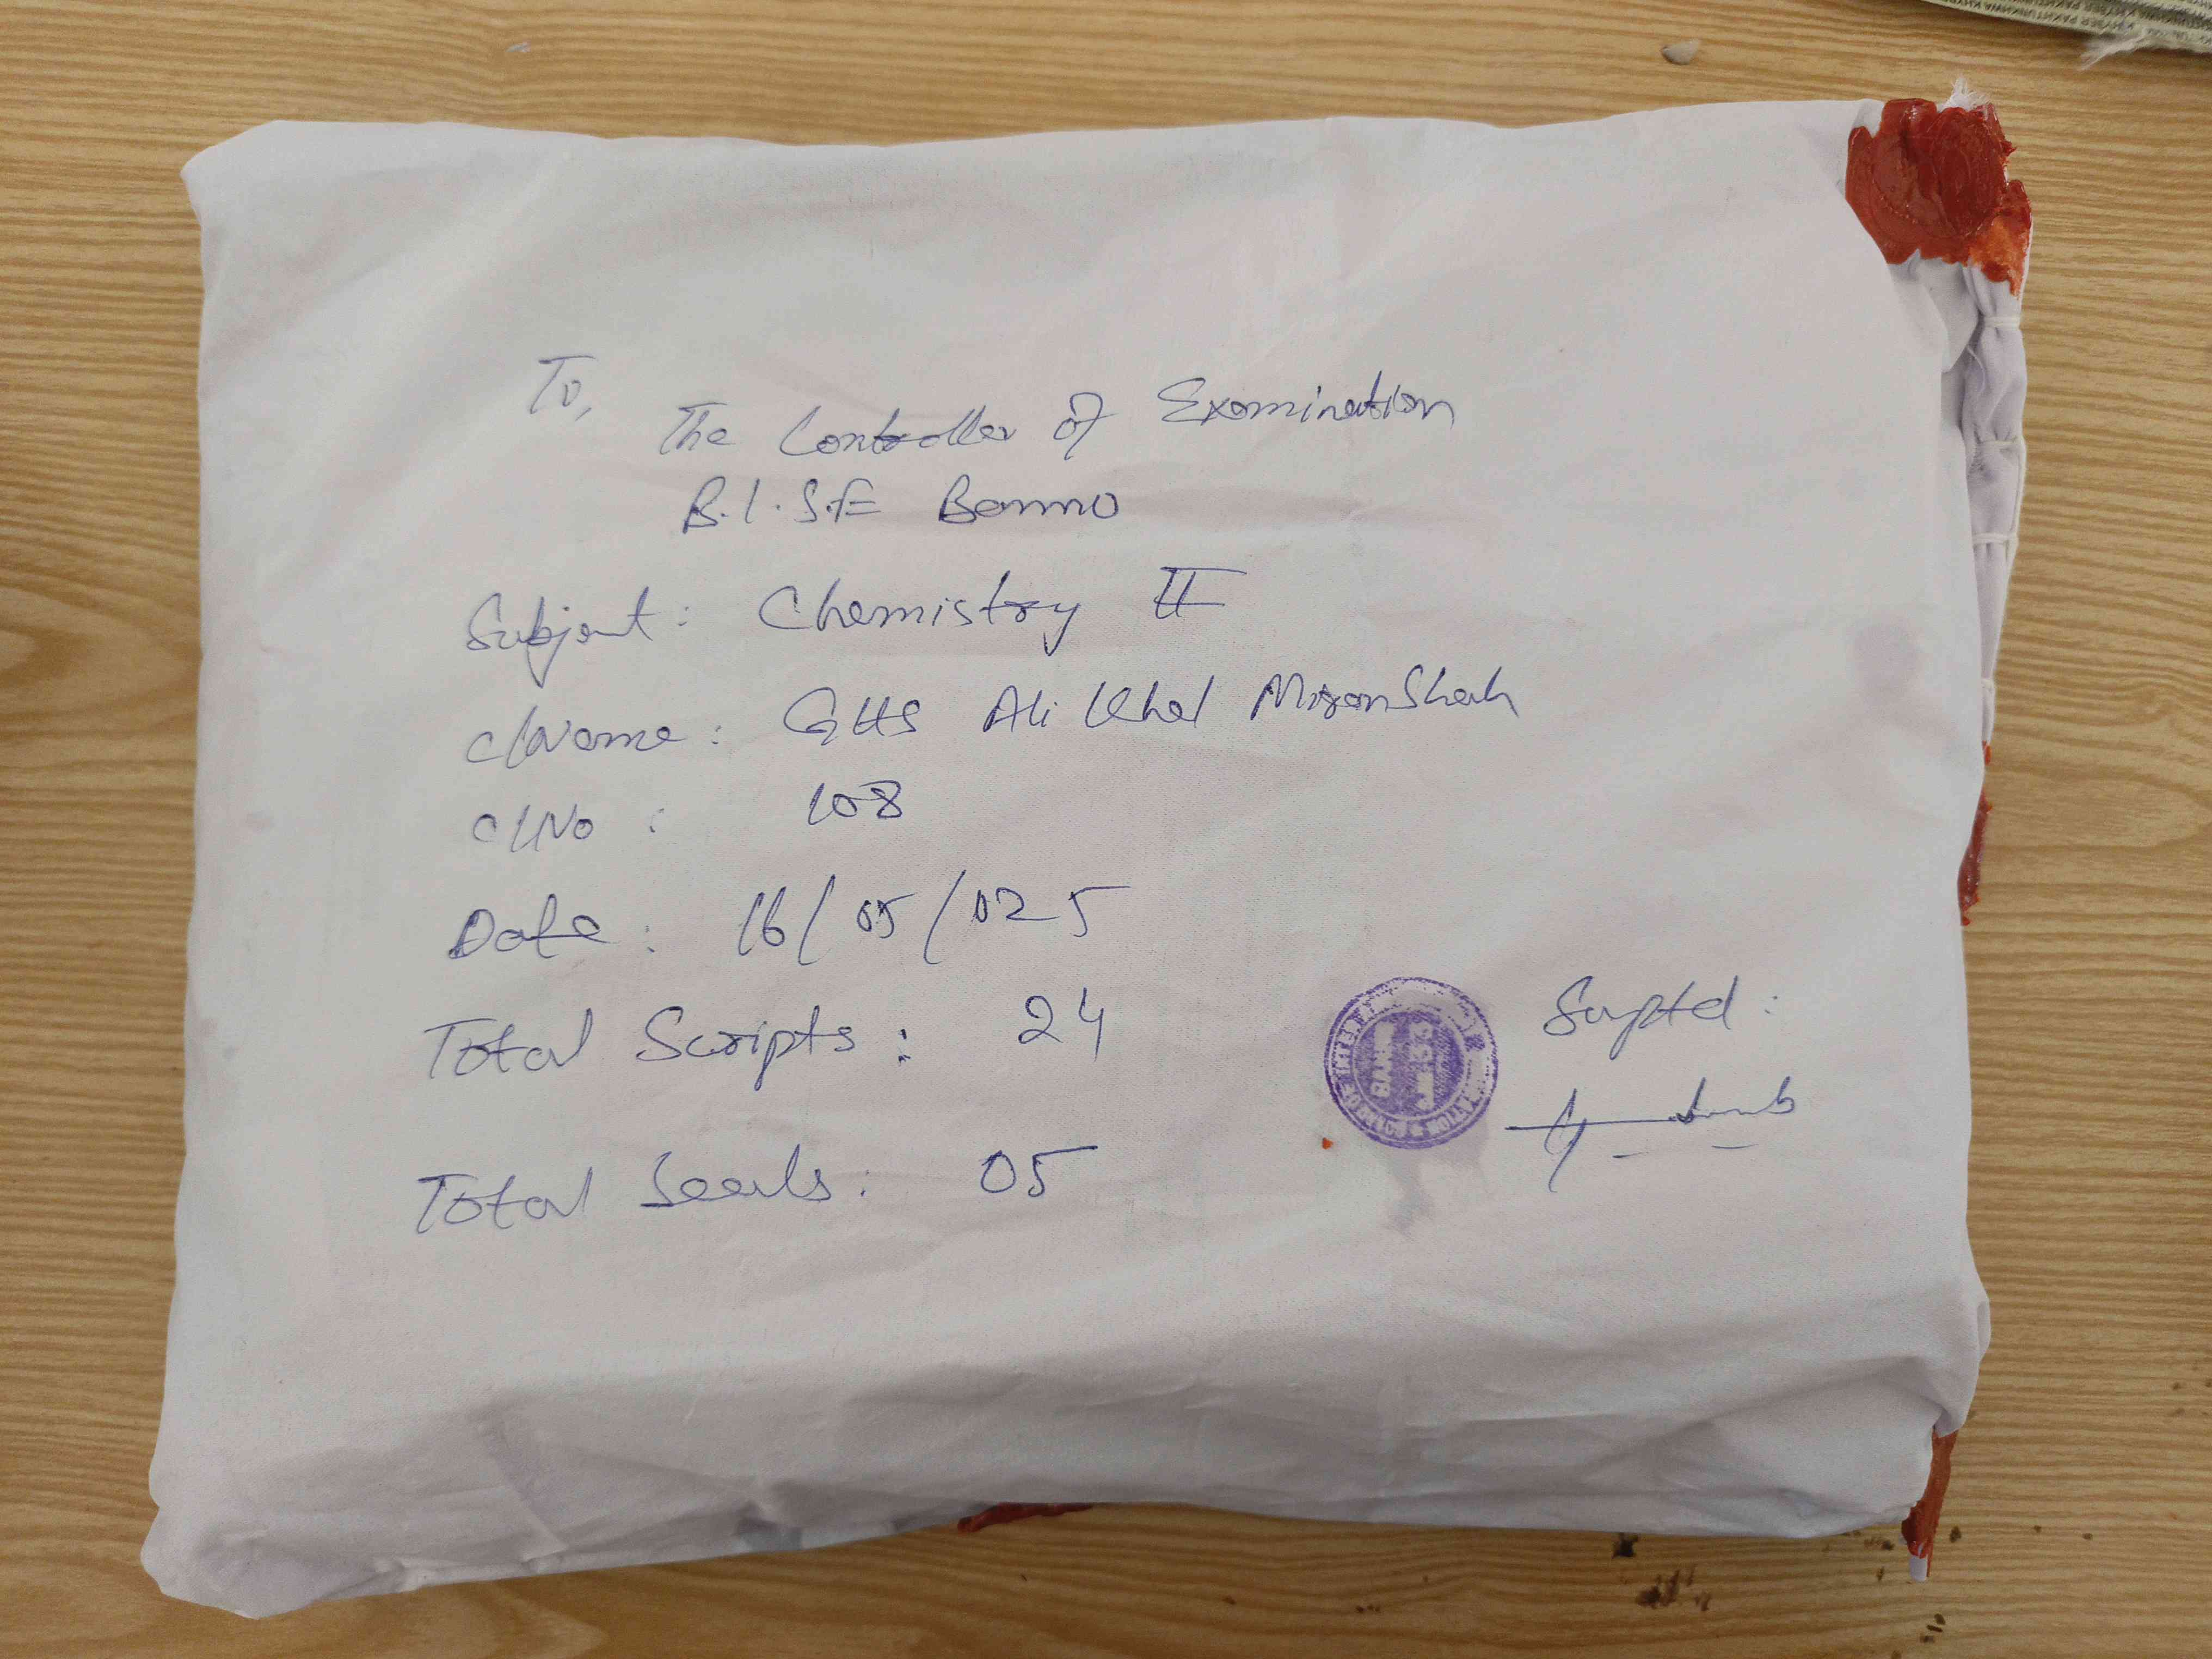 To,
The Controller of Examination
B.I.S.E Bannu
Subject: Chemistry II
C/Name: GHS Ali Khel MiranShah
C/No : 108
Date : 16/05/025
Total Scripts : 24
Total Seals : 05
Suptd :
KHYBER PAKHTUNKHWA